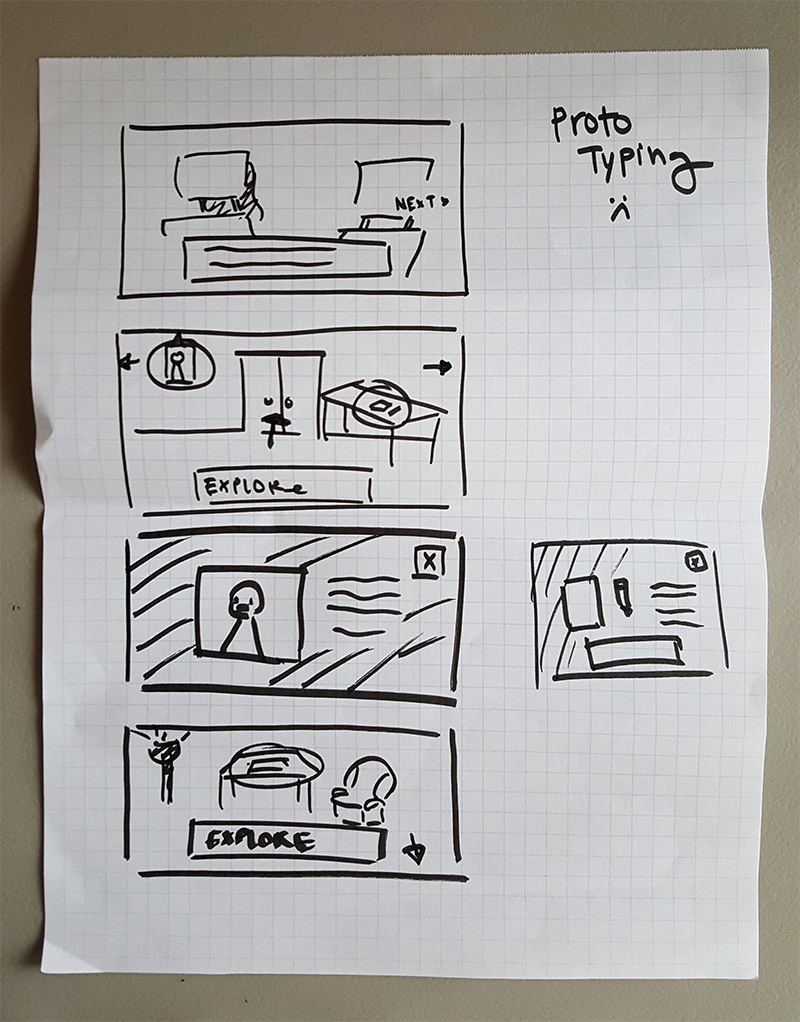 Proto
Typing
NEXT >
EXPLORE
X
X
EXPLORE